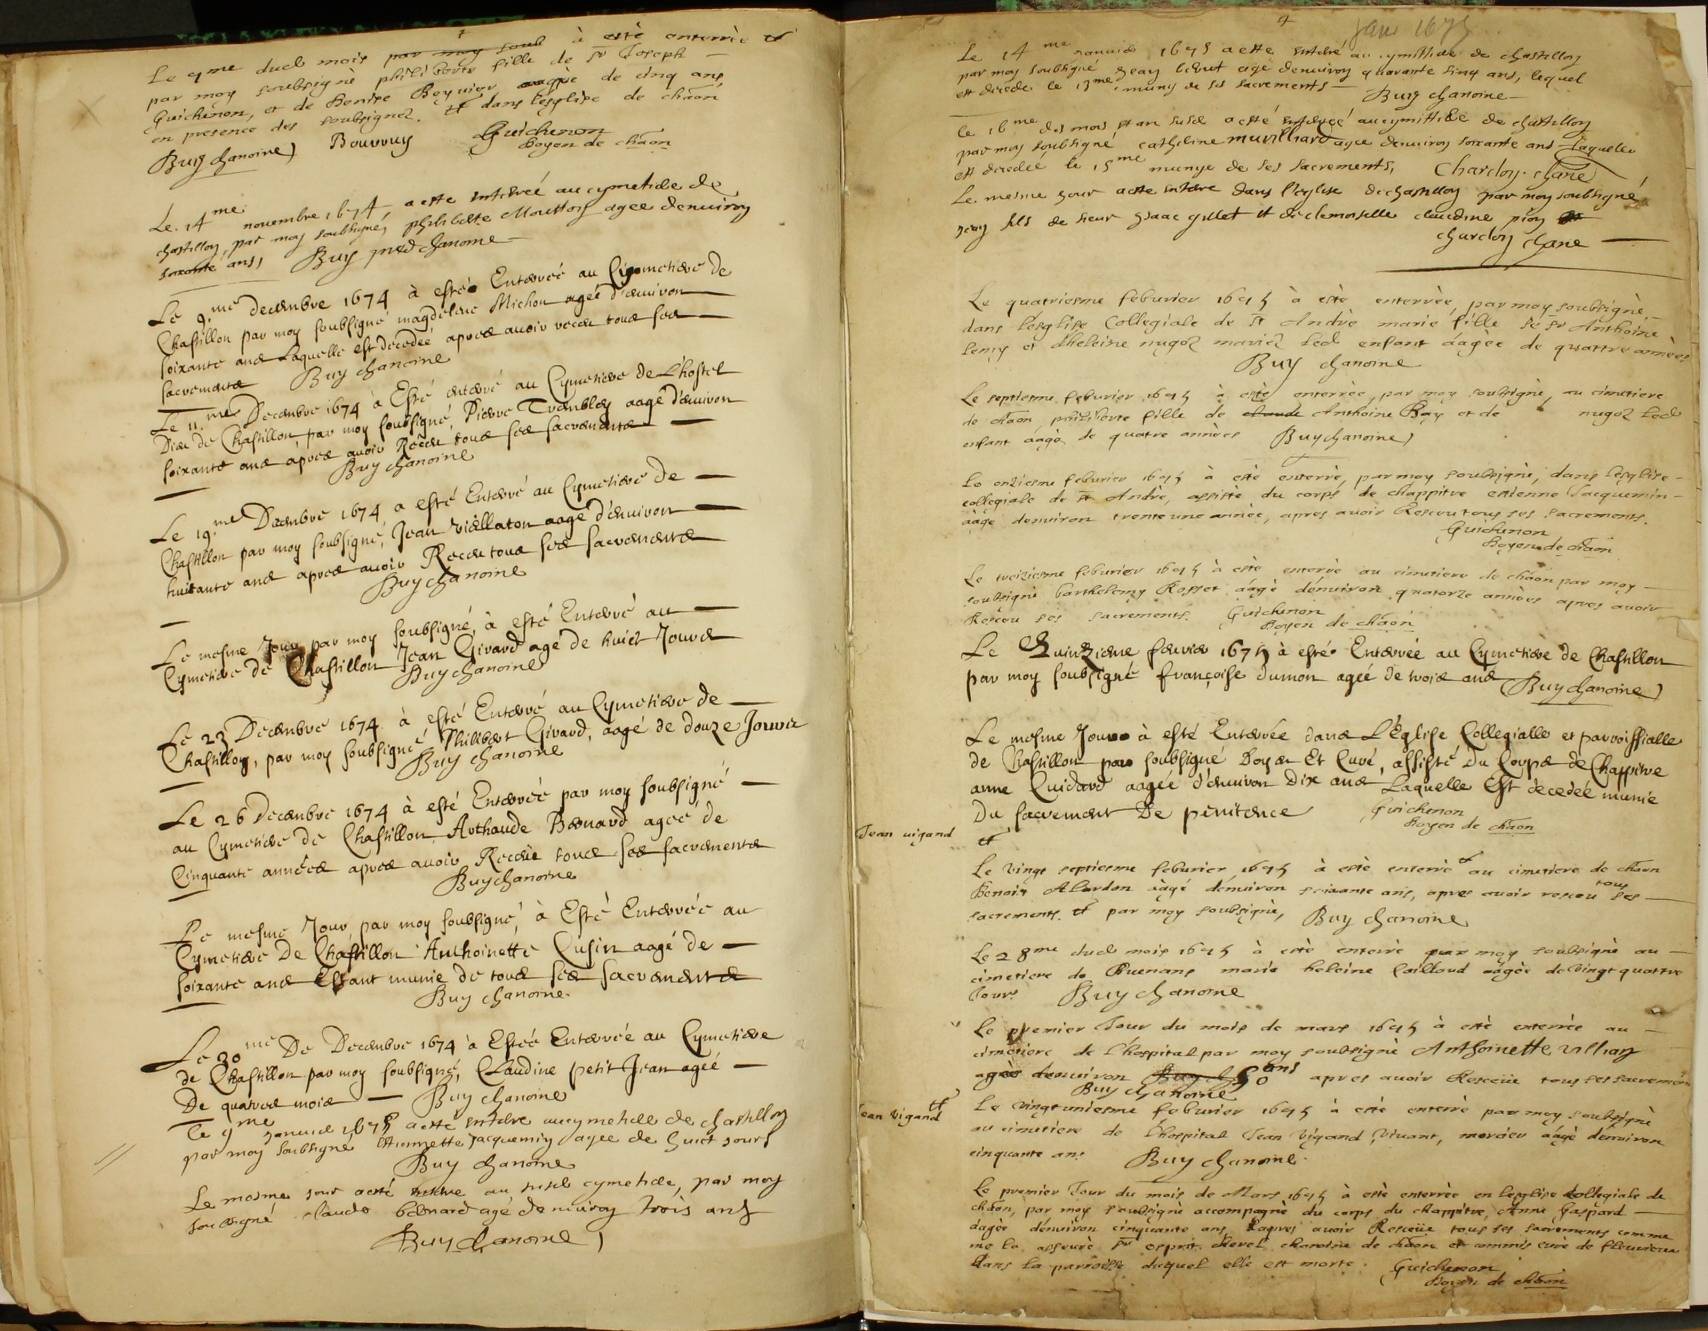 Le 9me dud mois par moy soub à esté enterrée et
par moy soubsigné philiberte fille de Sr Joseph
Guichenon, et de Denise Boyvier aagée de cinq ans,
en presence des soubsignez. et dans lesglise de chaon
Buy chanoine Bouvouy Guichenon
Doyen de chaon
Le 14me novembre 1674, a esté enterreé au cymetiere de
chastillon, par moy soubsigné, philiberte Moutton agee denuiron
soixante ans, Buy pred chanoine
Le 9.me decembre 1674 à esté Enterreé au Cymetiere de
Chastillon par moy soubsigné magdeleine Michon ageé d'enuiron
soixante ans Laquelle est décedée apres auoir receu tous ses
sacrements Buy chanoine
Le 11.me Decembre 1674 à Esté enterré au Cymetiere de L'hostel
Dieu de Chastillon, par moy soubsigné, Pierre Tremblay aagé d'enuiron
soixante ans apres auoir Receu tous ses sacrements
Buy chanoine
Le 19.me Decembre 1674 a esté Enterré au Cymetiere de
Chastillon par moy soubsigné, Jean Viellaton aagé d'enuiron
huictante ans apres auoir Receu tous ses sacrements
Buy chanoine
Le mesme Jour par moy soubsigné, à esté Enterré au
Cymetiere de Chastillon Jean Girard agé de huict Jours
Buy chanoine
Le 23 Decembre 1674 à esté Enterré au Cymetiere de
Chastillon, par moy soubsigné Philibert Girard, aagé de douze Jours
Buy chanoine
Le 26 Decembre 1674 à esté Enterreé par moy soubsigné
au Cymetiere de Chastillon Arthaude Bernard ageé de
Cinquante années apres auoir Receu tous ses sacrements
Buy chanoine
Le mesme Jour, par moy soubsigné, à Esté Enterreé au
Cymetiere De Chastillon Anthoinette Cusin aagé de
soixante ans Estant munie de tous ses sacrements
Buy chanoine
Le 30me De Decembre 1674 à Esteé Enterreé au Cymetiere
de Chastillon par moy soubsigné, Claudine petit Jean ageé
De quatre mois Buy chanoine
Le 9me Januié 1675 a esté enterre au cymetiere de chastillon
par moy soubsigné thionnette Jacquemin agee de huict jours
Buy chanoine
Le mesme jour a esté enterre au susd cymetiere, par moy
soubsigné claude bernard agé denuiron trois ans
Buy chanoine
Janv 1675
Le 14me Januié 1675 a esté enterré au cymittiere de chastillon
par moy soubsigné Jean agé denuiron quarante sinq ans, lequel
est decede le 13me muny de ses sacrements Buy chanoine
Le 16me des mois et an susd a esté enterreé au cymittiere de chastillon
par moy soubsigné catheline muvilliard agee denuiron soixante ans laquelle
est decedee le 15me munye de ses sacrements, Chardon chane
Le mesme jour a esté enterre dans l'esglise de chastillon par moy soubsigné
Jean fils de sieur Isaac gillet et de demoiselle claudine pion
chardon chane
Le quatriesme feburier 1675 à esté enterrée, par moy soubsigné
dans lesglise Collegiale de St André marie fille de Sr Anthoine
Lemy et dheleine nugoz mariez led enfant aagée de quattre années
Buy chanoine
Le septiesme feburier 1675 à esté enterrée, par moy soubsigné, au cimetiere
de chaon, philiberte fille de Anthoine Bay et de nugoz led
enfant aagé de quatre années Buy chanoine
Le onziesme feburier 1675 à esté enterré, par moy soubsigné, dans lesglise
collegiale de St André, assisté du corps de chappitre estienne Jacquemin
aagé denuiron trente une année, apres auoir Resceu tous ses sacrements.
Guichenon
Doyen de chaon
Le treiziesme feburier 1675 à esté enterré au cimetiere de chaon par moy
soubsigné barthelemy Rosset aagé denuiron quatorze années apres auoir
Resceu ses sacrements Guichenon
Doyen de chaon
Le Quinzieme feurier 1675 à esté Enterreé au Cymetiere de Chastillon
par moy soubsigné françoise dumon ageé de trois ans Buy chanoine
Le mesme Jour à esté Enterrée dans L'Eglise Collegialle et parroissialle
de Chastillon par soubsigné Doyen Et Curé, assisté du Corps de Chappitre
anne Guidard aageé d'enuiron Dix ans Laquelle Est decedeé munie
Du sacrement De penitence Guichenon
Doyen de chaon
Jean vigand
et
Le vingt septiesme feburier 1675 à esté enterré et au cimetiere de chaon
Benoit Alardon aagé denuiron soixante ans, apres auoir resceu tous ses
sacrements. et par moy soubsigné, Buy chanoine
Le 28me dud mois 1675 à esté enterré par moy soubsigné au
cimetiere de Buenans marie heleine Caillaud aagée de vingt quattre
Jours Buy chanoine
Le premier Jour du mois de mars 1675 à esté enterrée au
cimetiere de l'hospital par moy soubsigné Anthoinette villian
ageé denuiron 50 ans apres auoir Resceüe tous ses sacremens
Buy chanoine
Jean Vigand
et
Le vingtuniesme feburier 1675 à esté enterré par moy soubsigné
au cimetiere de l'hospital Jean Vigand Viuant, mercier aagé denuiron
cinquante ans Buy chanoine
Le premier Jour du mois de Mars 1675 à esté enterrée en lesglise collegiale de
chaon, par moy soubsigné accompagné du corps du chappitre, Anne Gaspard
aagée denuiron cinquante ans, apres auoir Resceüe tous ses sacrements comme
me la asseuré Sr esprit Revel chanoine de chaon et commis curé de fleurieux
dans la parroisse duquel elle est morte. Guichenon
Doyen de chaon